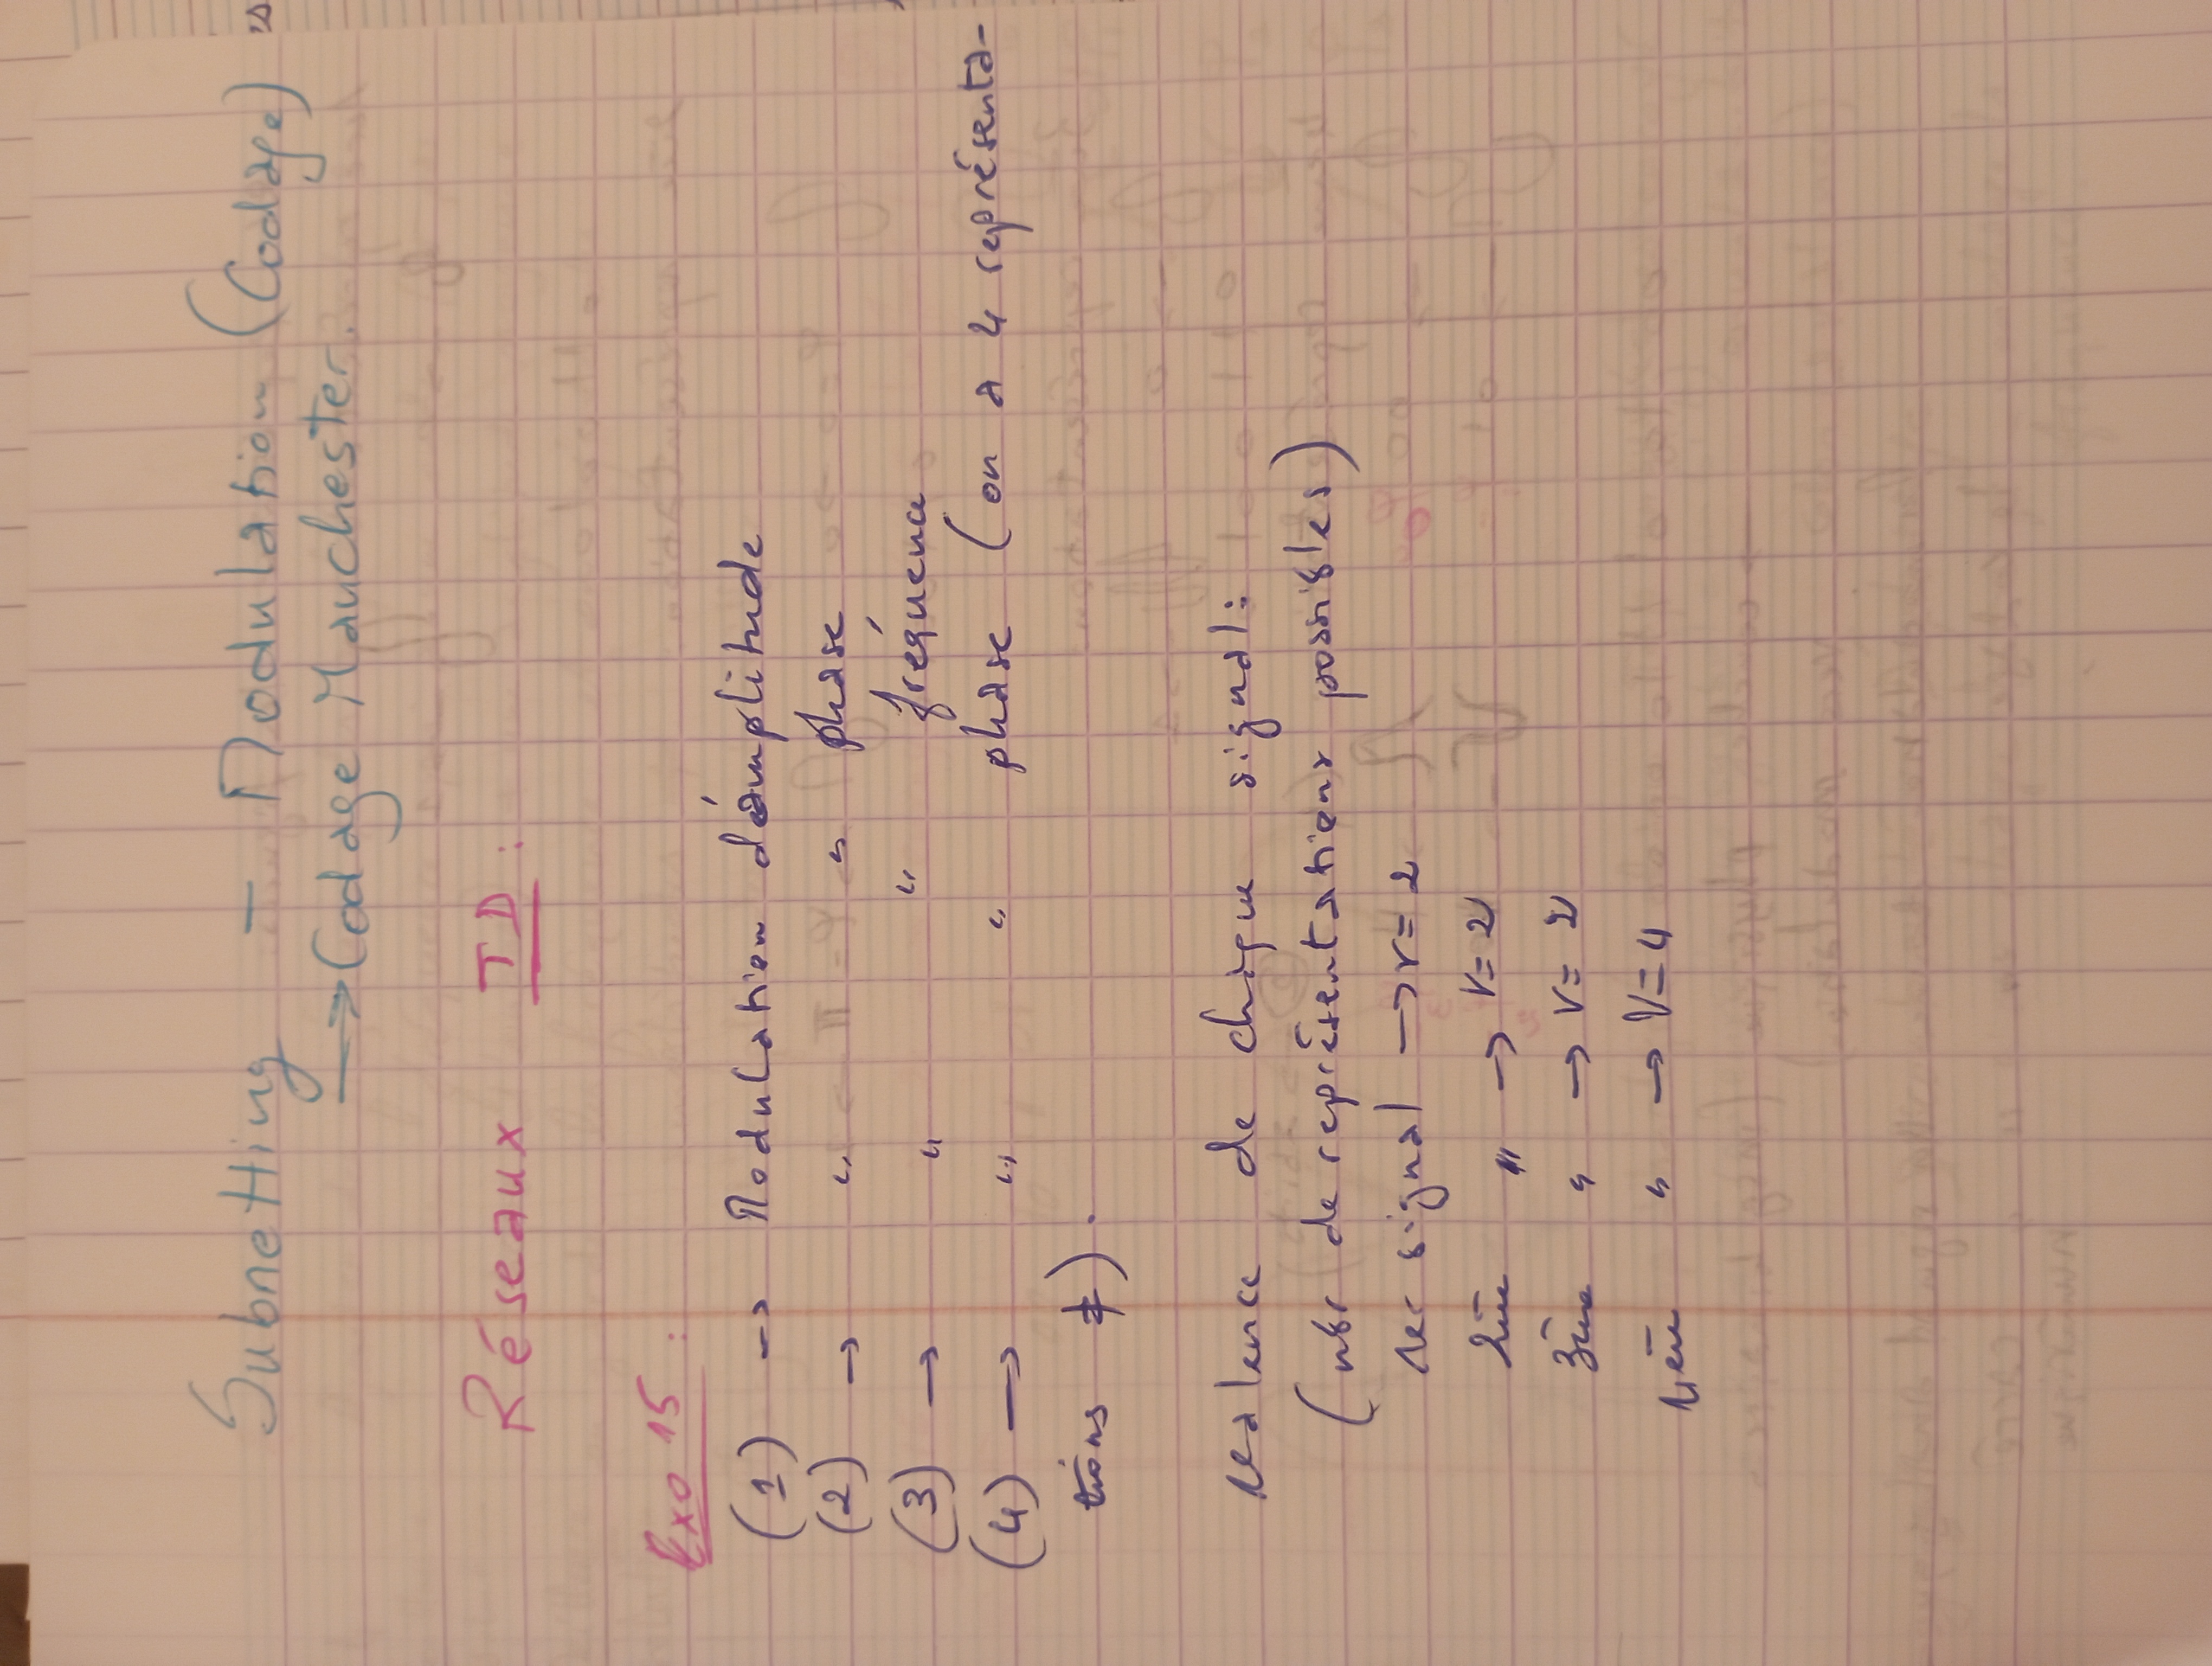 Subnetting - Modulation (Codage)
→ Codage Manchester.
Réseaux TD :
Exo 15 :
(1) → Modulation d'amplitude
(2) → " " phase
(3) → " " fréquence
(4) → " " phase (on a 4 représenta-
tions ≠).
Valence de chaque signal :
(nbr de représentations possibles)
1er signal → V = 2
2ème " → V = 2
3ème " → V = 2
4ème " → V = 4